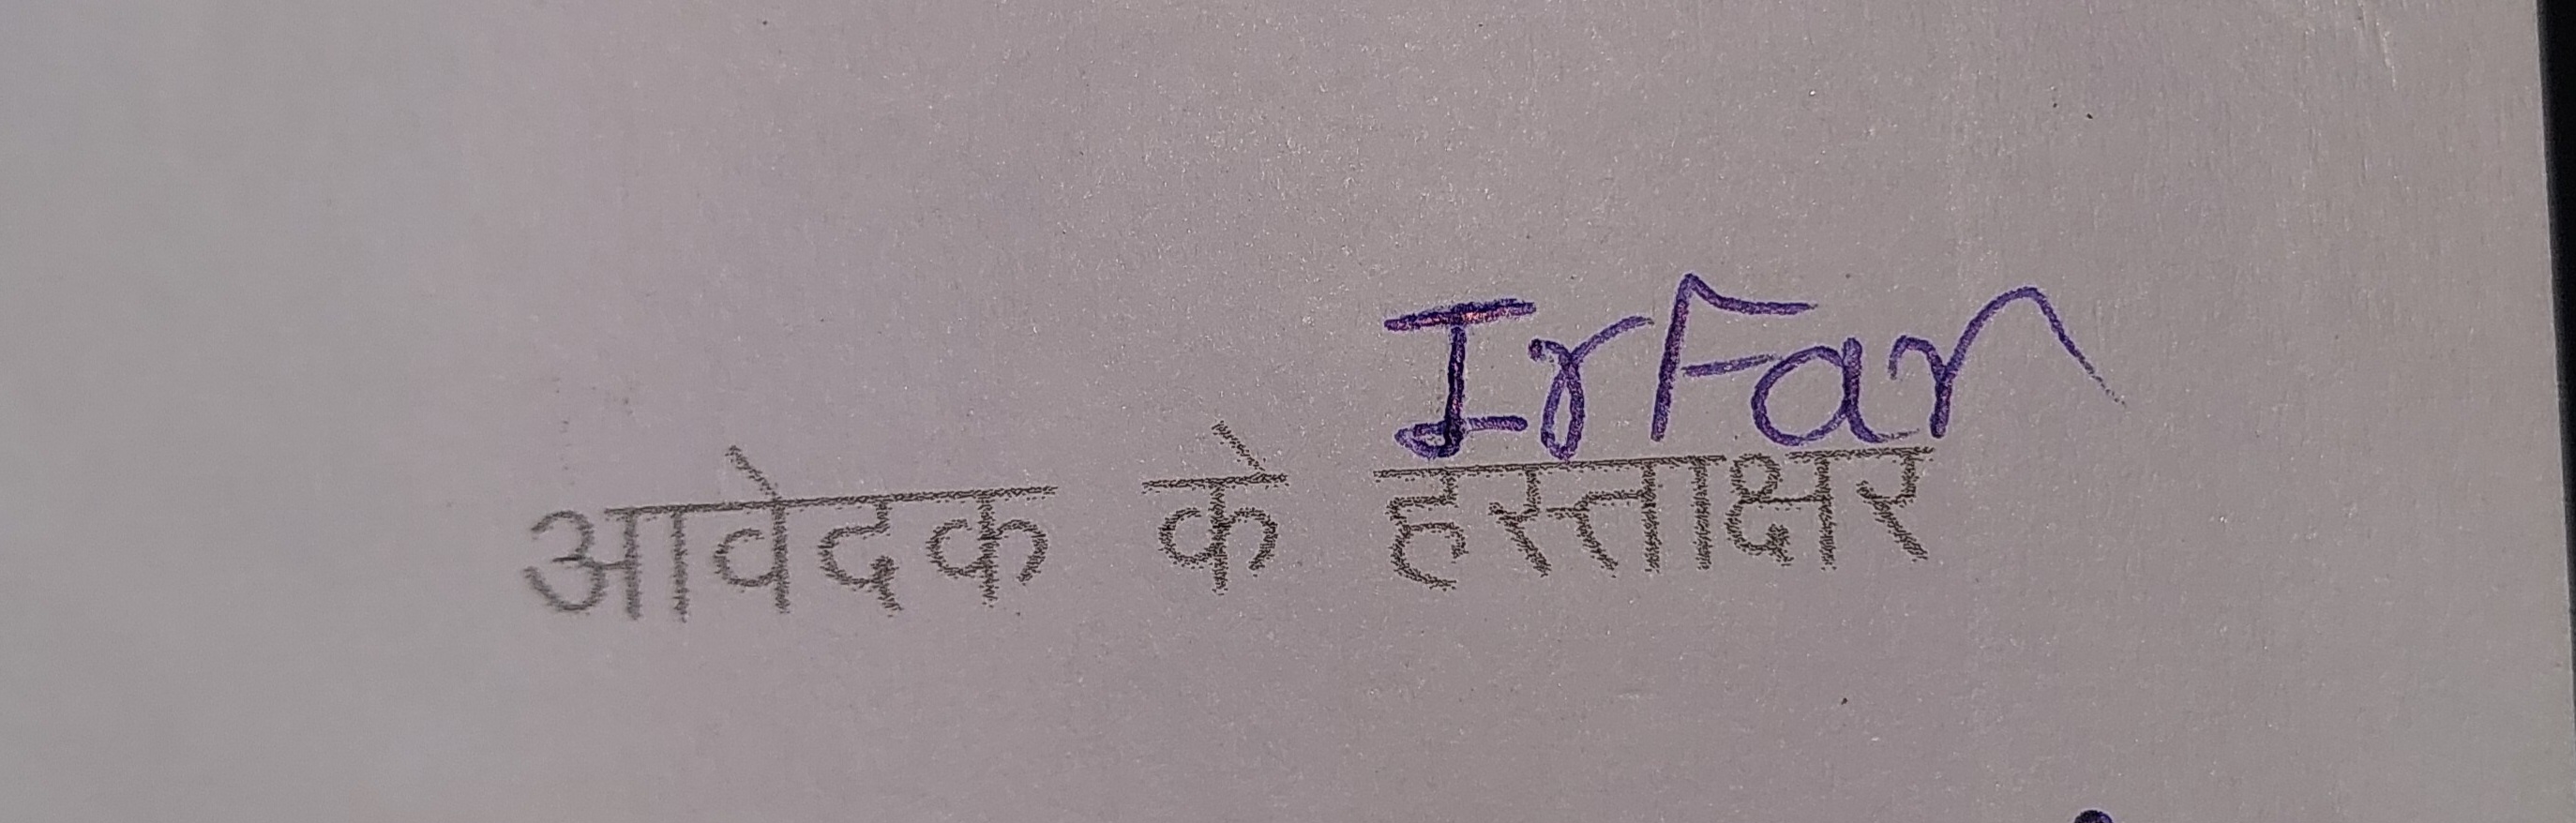 IrFan
आवेदक के हस्ताक्षर